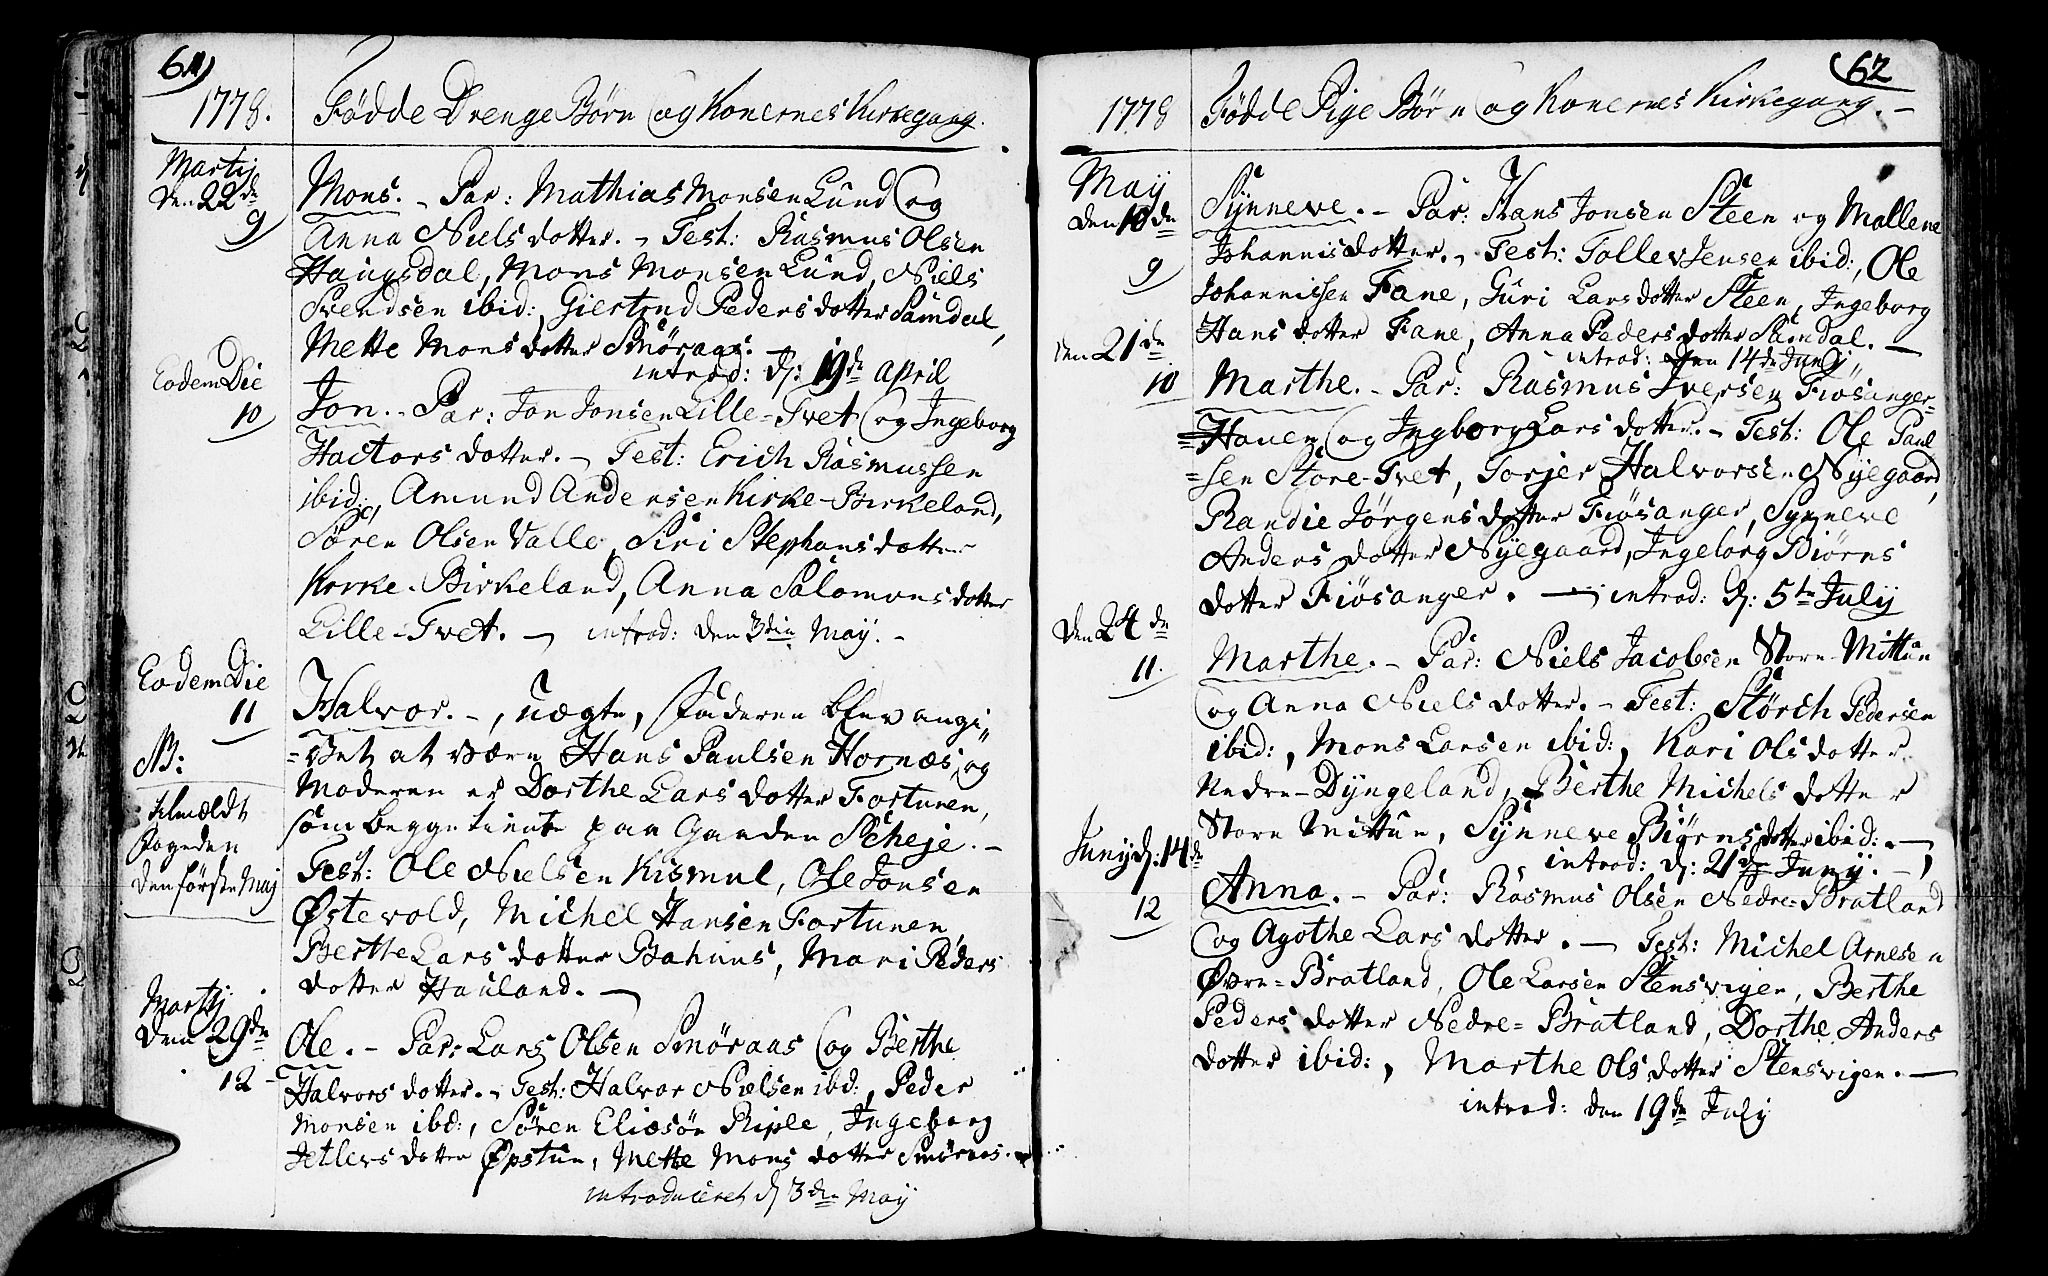 61)
1778. Fødde Drenge Børn og Konernes Kirkegang.
Martij
den 22de
9
Mons. - Par: Mathias Monsen Lund og
Anna Nielsdotter. - Test: Rasmus Olsen
Haugsdal, Mons Monsen Lund, Niels
Svendsen ibid:, Giertrud Pedersdotter Samdal,
Mette Monsdotter Smøraas.
introd: d: 19de April
Eodem Die
10
Jon. - Par: Jon Jonsen Lille-Tvet og Ingeborg
Hactorsdotter. - Test: Erich Rasmussen
ibid:, Amund Andersen Kirke-Birkeland,
Søren Olsen Valle, Siri Stephansdotter
Kirke-Birkeland, Anna Salomonsdotter
Lille-Tvet. - introd: den 3die May. -
Eodem Die
11
NB:
tilmældt
Fogeden
den første Maj
Halvor. -, uægte, Faderen blev angi
=vet at være Hans Paulsen Hornæs, og
Moderen er Dorthe Larsdotter Fortunen,
som begge tiente paa Gaarden Scheje. -
Test: Ole Nielsen Kismul, Ole Jonsen
Østevold, Michel Hansen Fortunen,
Berthe Larsdotter Bahuus, Mari Peders
dotter Hauland. -
Martij
den 29de
12
Ole. - Par: Lars Olsen Smøraas og Berthe
Halvorsdotter. - Test: Halvor Nielsen ibd:, Peder
Monsen ibd:, Søren Eliæsøn Riple, Ingeborg
Jetlevsdotter Øpstun, Mette Monsdotter Smøraas.
introduceret d 3die May
(62
1778 Fødde Pige Børn og Konernes Kirkegang. -
May
den 10de
9
Synneve. - Par: Hans Jonsen Steen og Mallene
Johannisdotter. - Test: Tollev Jensen ibid:, Ole
Johannissen Fane, Guri Larsdotter Steen, Ingeborg
Hansdotter Fane, Anna Pedersdotter Samdal. -
introd: den 14de Junij
den 21de
10
Marthe. - Par: Rasmus Iversen Fiøsanger=
=Hauen og Ingborg Larsdotter. - Test: Ole Paul
=sen Store-Tvet, Torjer Halvorsen Nyegaard,
Randie Jørgensdotter Fiøsanger, Synneve
Andersdotter Nyegaard, Ingeborg Biørns
dotter Fiøsanger. - introd: d: 5te July
den 24de
11.
Marthe. - Par: Niels Jacobsen Store Mittun
og Anna Nielsdotter. - Test: Størch Pedersen
ibid:, Mons Larsen ibid:, Kari Olsdotter
Nedre-Dyngeland, Berthe Michelsdotter
Store Mittun, Synneve Biørnsdotter ibid: -
introd: d: 21de Juny. -
Juny d: 14de
12
Anna. - Par: Rasmus Olsen Nedre-Bratland
og Agothe Larsdotter. - Test: Michel Arnesen
Øvre=Bratland, Ole Larsen Stensvigen, Berthe
Pedersdotter Nedre=Bratland, Dorthe Anders
dotter ibid:, Marthe Olsdotter Stensvigen. -
introd: den 19de July